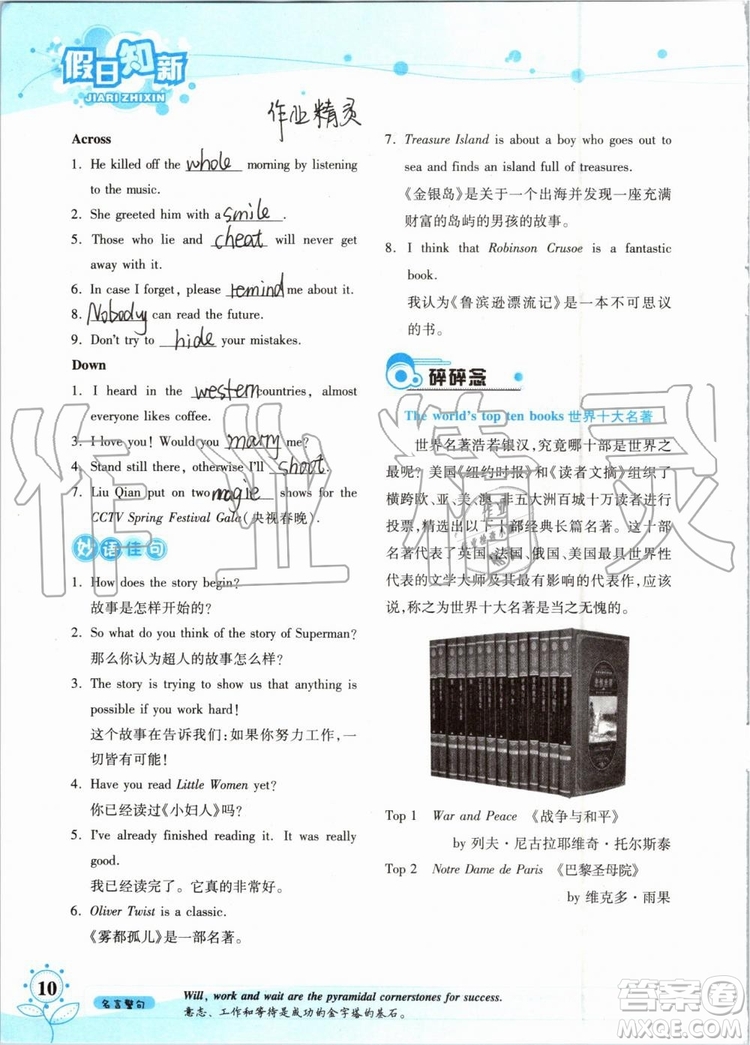 假日知新
JIARI ZHIXIN
作业精灵
Across
1. He killed off the whole morning by listening
to the music.
2. She greeted him with a smile.
5. Those who lie and cheat will never get
away with it.
6. In case I forget, please remind me about it.
8. Nobody can read the future.
9. Don't try to hide your mistakes.
Down
1. I heard in the western countries, almost
everyone likes coffee.
3. I love you! Would you marry me?
4. Stand still there, otherwise I'll shoot.
7. Liu Qian put on two magic shows for the
CCTV Spring Festival Gala(央视春晚).
妙语佳句
1. How does the story begin?
故事是怎样开始的?
2. So what do you think of the story of Superman?
那么你认为超人的故事怎么样?
3. The story is trying to show us that anything is
possible if you work hard!
这个故事在告诉我们:如果你努力工作,一
切皆有可能!
4. Have you read Little Women yet?
你已经读过《小妇人》吗?
5. I've already finished reading it. It was really
good.
我已经读完了。它真的非常好。
6. Oliver Twist is a classic.
《雾都孤儿》是一部名著。
7. Treasure Island is about a boy who goes out to
sea and finds an island full of treasures.
《金银岛》是关于一个出海并发现一座充满
财富的岛屿的男孩的故事。
8. I think that Robinson Crusoe is a fantastic
book.
我认为《鲁滨逊漂流记》是一本不可思议
的书。
碎碎念
The world's top ten books 世界十大名著
世界名著浩若银汉,究竟哪十部是世界之
最呢?美国《纽约时报》和《读者文摘》组织了
横跨欧、亚、美、澳、非五大洲百城十万读者进行
投票,精选出世界十部经典长篇名著。这十部
名著代表了英国、法国、俄国、美国最具世界性
代表的文学大师及其最有影响的代表作,应该
说,称之为世界十大名著是当之无愧的。
Top 1 War and Peace 《战争与和平》
by 列夫·尼古拉耶维奇·托尔斯泰
Top 2 Notre Dame de Paris 《巴黎圣母院》
by 维克多·雨果
10
名言警句
Will, work and wait are the pyramidal cornerstones for success.
意志、工作和等待是成功的金字塔的基石。
作业精灵
答案圈
MXQE.COM